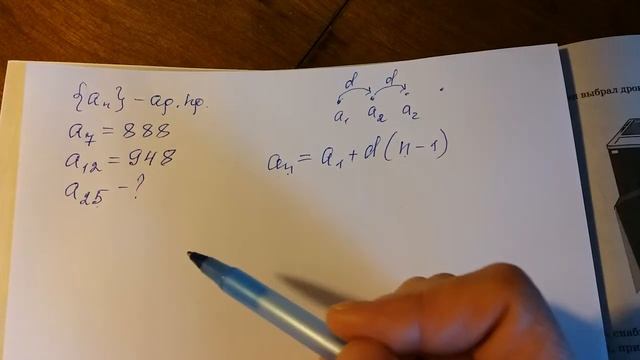 {aₙ} – ар. пр.
a₇ = 888
a₁₂ = 948
a₂₅ – ?
d d
a₁ a₂ a₂
aₙ = a₁ + d(n – 1)
выбрал